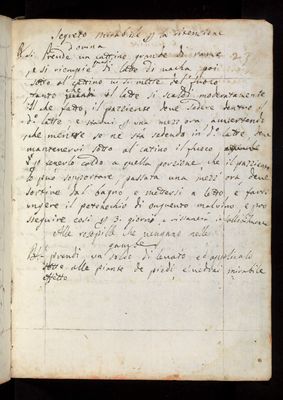 Segreto mirabile p la
donna
Prende un cattino grande di rame
e si riempie di latte di vacha poi
sotto al cattino vi si mette del fuoco
tanto che il latte si scaldi modentamente
il che fatto, il paziente deve sedere dentro il
d.o latte e starvi p una mezz ora avvertendo
che mentre se ne sta sedendo in d.o latte deve
mantenervi sotto al catino il fuoco
p tenerlo caldo a quella porzione, che il paziente
lo può sopportare, passata una mezz ora deve
sortire dal bagno e mettersi a letto e farsi
ungere il petenechio di onguento malvino e pro
seguire così p 3. giorni e risanerà
Alle rosepille che vengano nelle
gambe
prendi un soldo di levato ed applicalo
sotto alle piante de piedi e vedrai mirabile
effetto